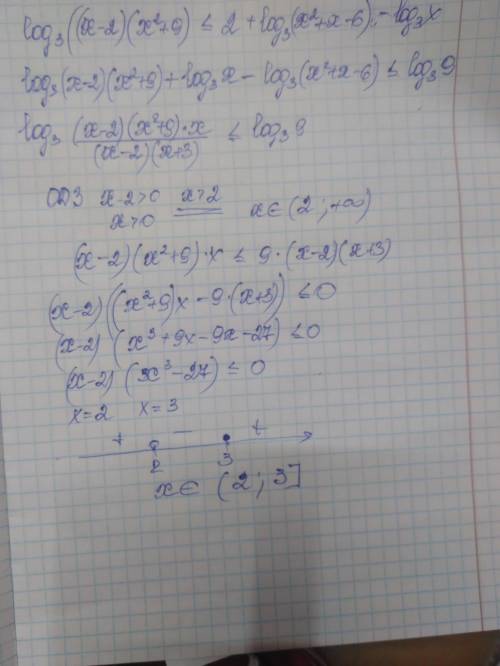 log₃((x-2)(x²+9) ≤ 2 + log₃(x²+x-6) - log₃x
log₃(x-2)(x²+9) + log₃x - log₃(x²+x-6) ≤ log₃9
log₃ (x-2)(x²+9)·x / (x-2)(x+3) ≤ log₃9
ОДЗ x-2>0 x>2 x∈(2; +∞)
x>0
(x-2)(x²+9)·x ≤ 9·(x-2)(x+3)
(x-2)((x²+9)x - 9·(x+3)) ≤0
(x-2)(x³+9x-9x-27) ≤0
(x-2)(x³-27) ≤ 0
x=2 x=3
+ - +
2 3
x∈ (2; 3]